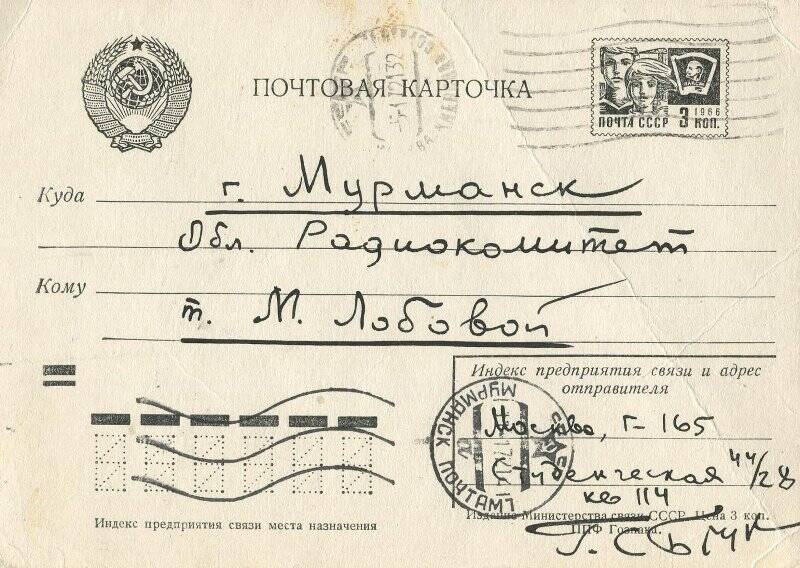 ПОЧТОВАЯ КАРТОЧКА
1966
ПОЧТА СССР 3 КОП.
Куда г. Мурманск
Обл. Радиокомитет
Кому
т. М. Лобовой
Индекс предприятия связи и адрес
отправителя
Москва, Г-165
Студенческая 44/28
кв 114
МУРМАНСК ПОЧТАМТ
Индекс предприятия связи места назначения
Издание Министерства связи СССР. Цена 3 коп.
ППФ Гознака.